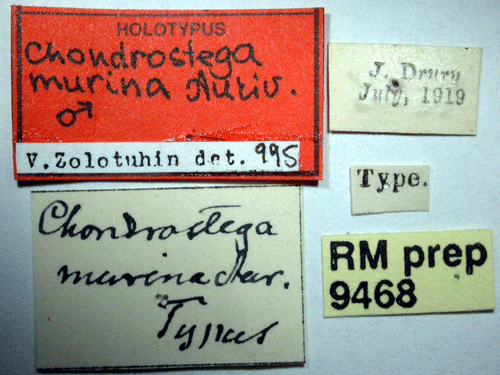 HOLOTYPUS
Chondrostega
murina Auriv.
♂
V. Zolotuhin det. 995
J. Drury
July, 1919
Type.
Chondrostega
murina Aur.
Typus
RM prep
9468